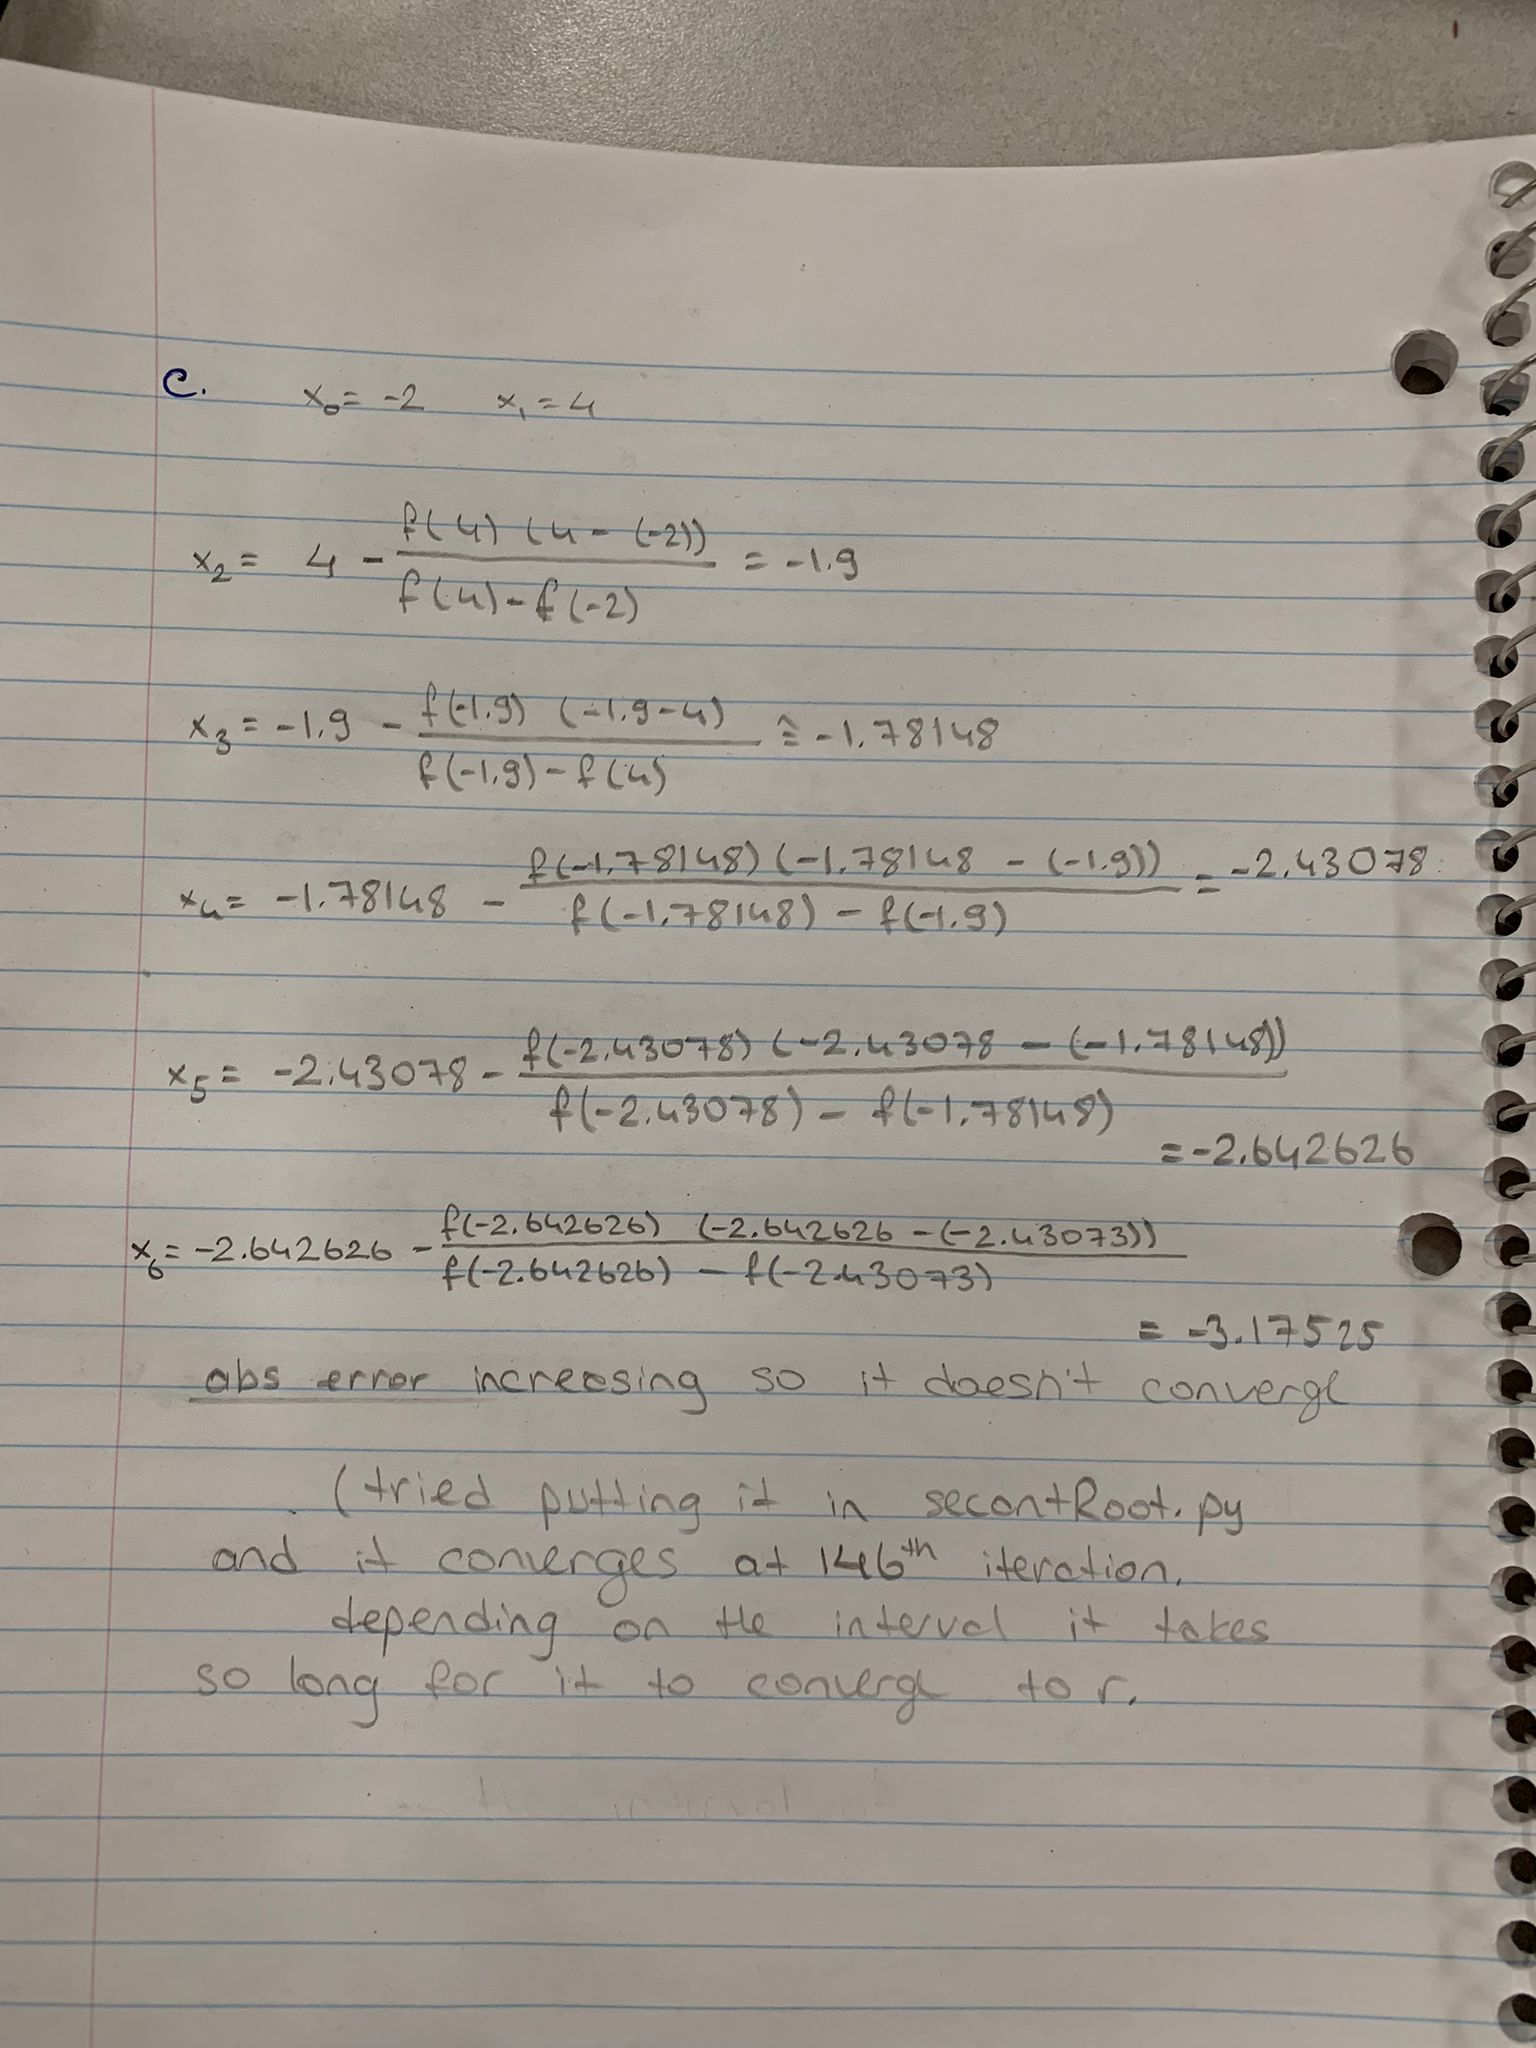 c. x₀ = -2 x₁ = 4
x₂ = 4 - f(4) (4 - (-2)) / f(4) - f(-2) = -1.9
x₃ = -1.9 - f(-1.9) (-1.9-4) / f(-1.9) - f(4) ≅ -1.78148
x₄ = -1.78148 - f(-1.78148) (-1.78148 - (-1.9)) / f(-1.78148) - f(-1.9) = -2.43078
x₅ = -2.43078 - f(-2.43078) (-2.43078 - (-1.78148)) / f(-2.43078) - f(-1.78148)
= -2.642626
x₆ = -2.642626 - f(-2.642626) (-2.642626 - (-2.43073)) / f(-2.642626) - f(-2.43073)
= -3.17525
abs error increasing so it doesn't converge
(tried putting it in secantRoot.py
and it converges at 146th iteration.
depending on the interval it takes
so long for it to converge to r.